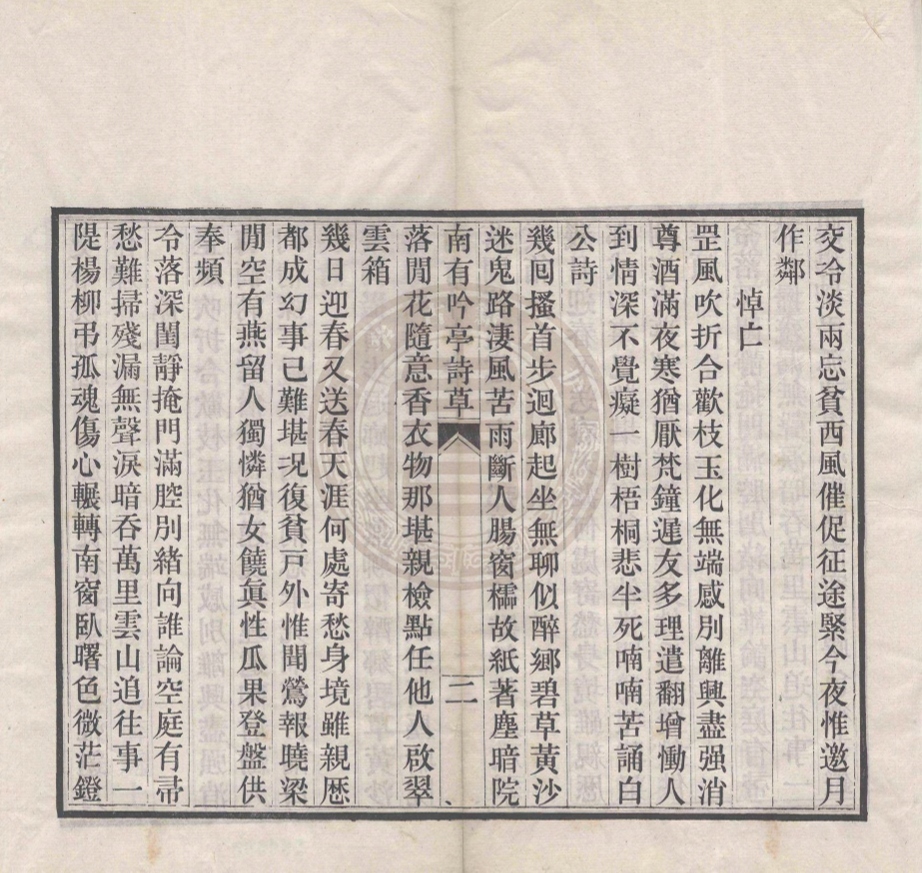 交冷淡兩忘貧西風催促征途緊今夜惟邀月
作鄰
悼亡
罡風吹折合歡枝玉化無端感別離興盡强消
尊酒滿夜寒猶厭梵鐘遲友多理遣翻增慟人
到情深不覺癡一樹梧桐悲半死喃喃苦誦白
公詩
幾囘搔首步迴廊起坐無聊似醉鄉碧草黃沙
迷鬼路淒風苦雨斷人腸窗櫺故紙著塵暗院
南有吟亭詩草
二
落閒花隨意香衣物那堪親檢點任他人啟翠
雲箱
幾日迎春又送春天涯何處寄愁身境雖親歷
都成幻事已難堪况復貧戶外惟聞鶯報曉梁
閒空有燕留人獨憐猶女饒眞性瓜果登盤供
奉頻
冷落深閨靜掩門滿腔別緒向誰論空庭有帚
愁難掃殘漏無聲淚暗吞萬里雲山追往事一
隄楊柳弔孤魂傷心輾轉南窗臥曙色微茫鐙